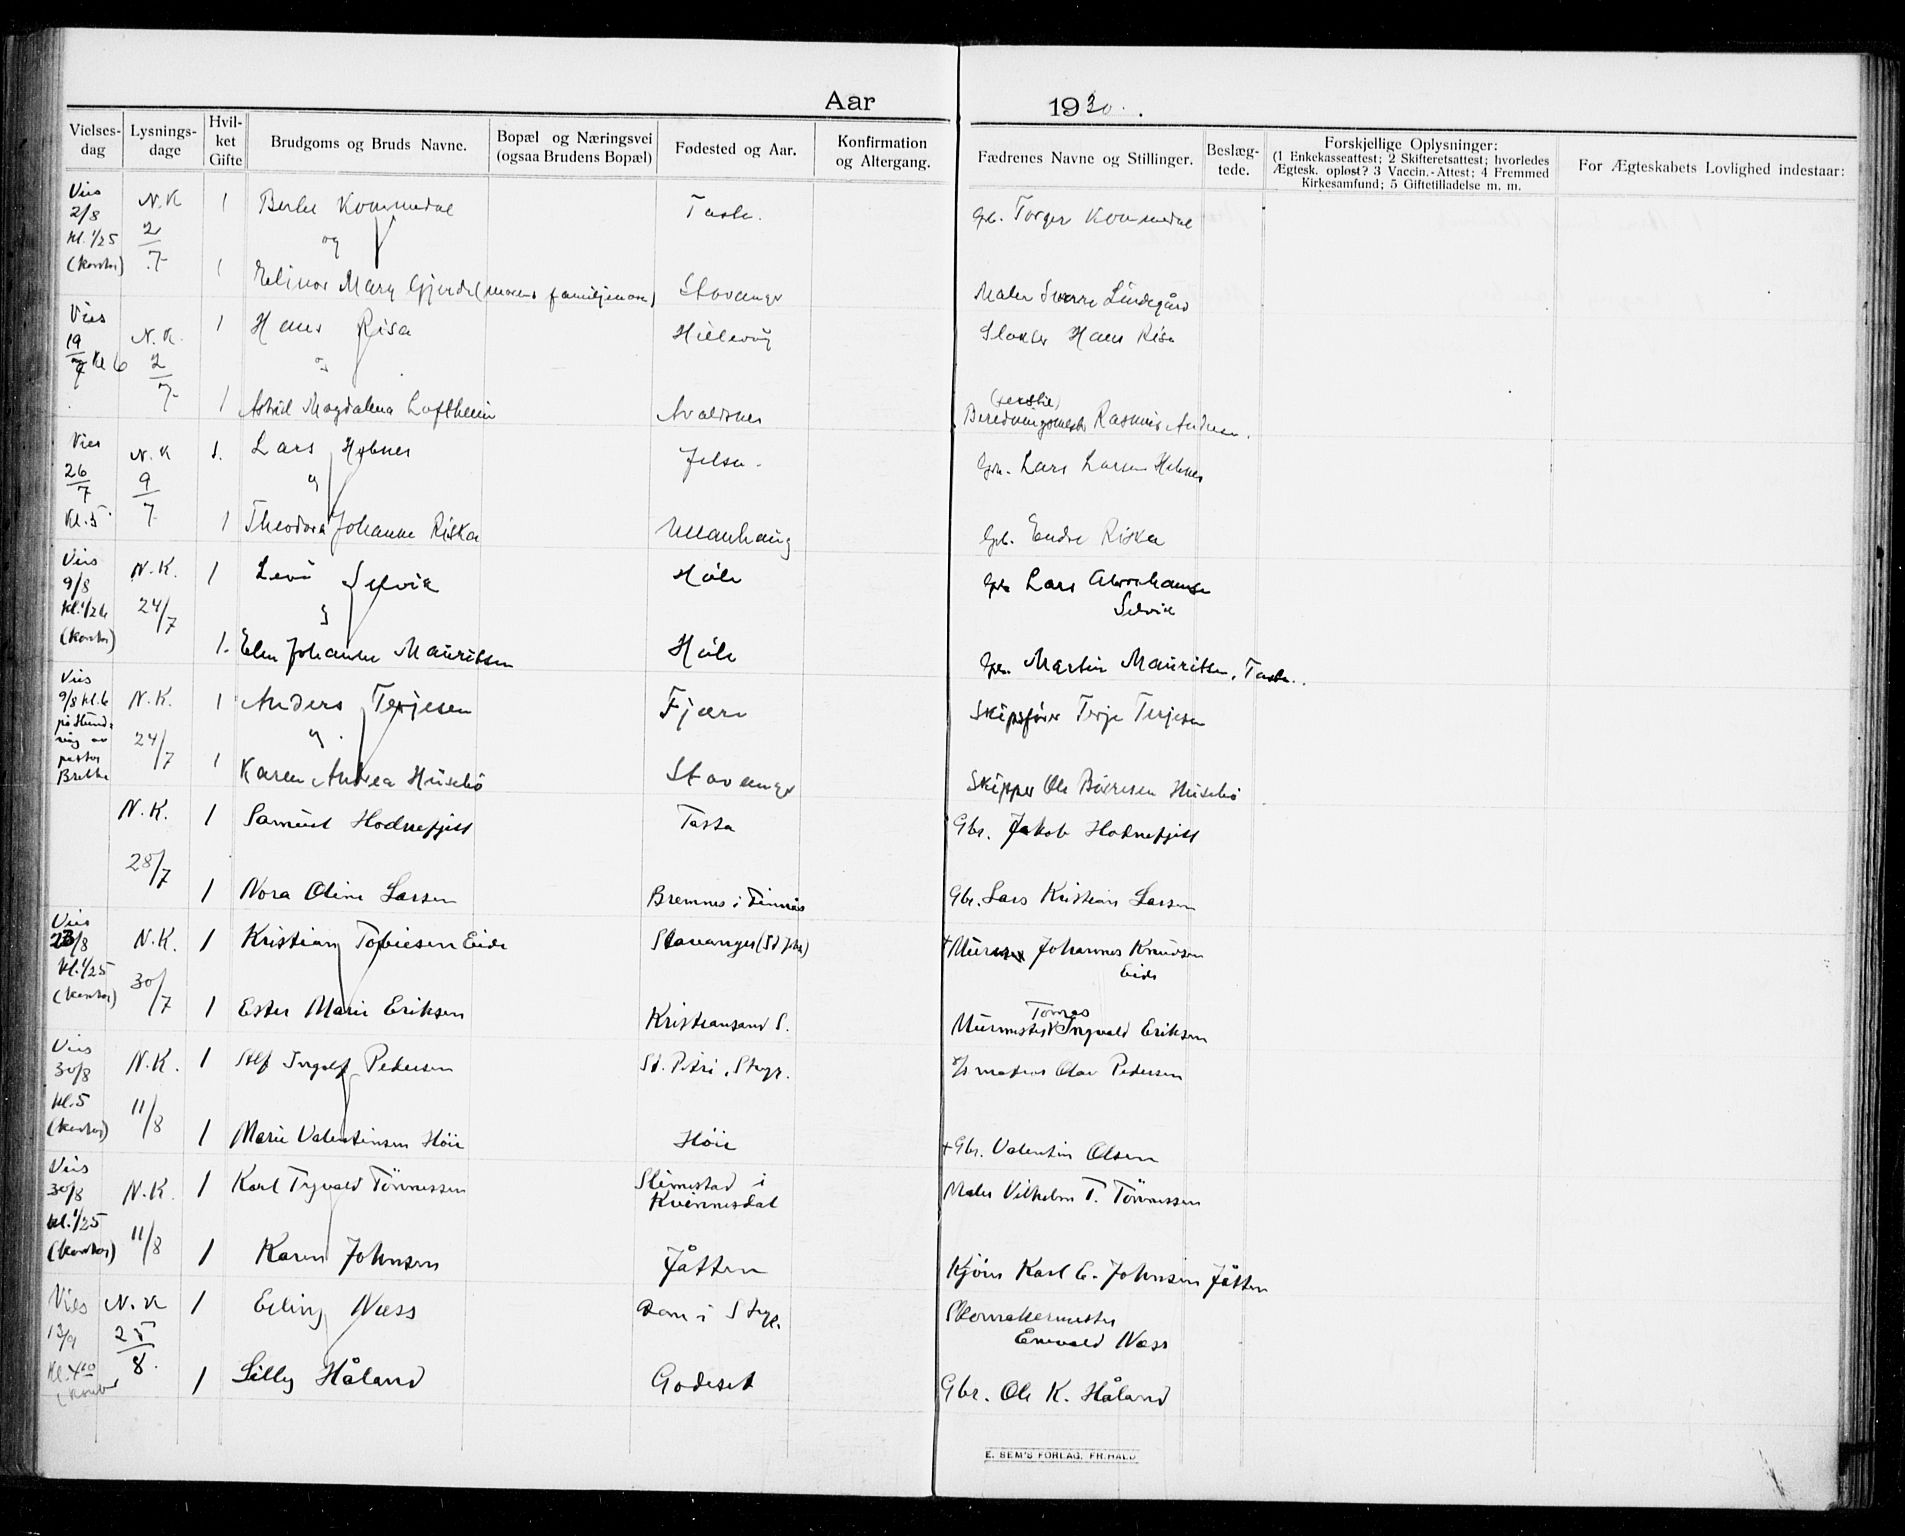 Aar 1930.
Vielses-dag
Lysnings-dage
Hvil-ket Gifte
Brudgoms og Bruds Navne.
Bopæl og Næringsvei (ogsaa Brudens Bopæl)
Fødested og Aar.
Konfirmation og Altergang.
Fædrenes Navne og Stillinger.
Beslæg-tede.
Forskjellige Oplysninger:
(1 Enkekasseattest; 2 Skifteretsattest; hvorledes
Ægtesk. opløst? 3 Vaccin.-Attest; 4 Fremmed
Kirkesamfund; 5 Giftetilladelse m. m.
For Ægteskabets Lovlighed indestaar:
Vies 2/8 kl. 1/2 5 (kontor) N.K 2/7 1 Kommedal Tasta. Gb. Torger Kommedal
og
1 Elinor Mary Gjerde (morens familjenavn) Stavanger Maler Sverre Lindegård
Vies 19/7 kl 6 N.K. 2/7 1 Hans Risa Hillevåg Hans Risa
og
1 Astrid Magdalena Loftheim Avaldsnes Rasmus
Vies 26/7 kl. 5 N.K 9/7 1. Lars Hebnes Jelsa. Gb. Lars Larsen Hebnes
og
1 Theodora Johanne Riska Ullanhaug Gb. Endre Riska
Vies 9/8 kl. 1/2 6 (kontor) N.K. 24/7 1 Levi Selvik Høle Gb Lars Abrahamsen
Selvik
og
1. Elen Johanne Mauritsen Høle Gb. Martin Mauritsen, Tasta.
Vies 9/8 kl. 6 på Hundvåg av pastor Brekke N.K. 24/7 1 Anders Terjesen Fjære Skipsfører Terje Terjesen
og
1 Karen Andrea Husebö Stavanger Skipper Ole Børresen Husebö
N.K. 28/7 1 Samuel Hodnefjell Tasta Gbr. Jakob Hodnefjell
1 Nora Oline Larsen Bremnes i Finnås Gbr. Lars Kristian Larsen
Vies 23/8 kl. 1/2 5 (kontor) N.K. 30/7 1 Kristian Tobiesen Eide Stavanger (St. Joh) + Murmester Johannes Knudsen
Eide
1 Ester Marie Eriksen Kristiansand S. Murmester Tomas Ingvald Eriksen
Vies 30/8 kl. 5 (kontor) N.K. 11/8 1 Alf Ingolf Pedersen St. Petri, Stvgr. Olav Pedersen
1 Marie Valentinsen Höie Höie + Gbr. Valentin Olsen
Vies 30/8 kl. 1/2 5 (kontor) N.K. 11/8 1 Karl Trygvald Tönnessen i
Kvinnesdal Maler Vilhelm T. Tönnessen
1 Karen Johnsen Jåtten Karl E. Johnsen Jåtten
Vies 13/9 kl. 4 (kontor N.K 25/8. 1 Erling Næss Dom i Stvgr. Skomakermester
Enevald Næss
1 Lilly Håland Godeset Gbr. Ole K. Håland
E. SEM'S FORLAG, FR.HALD